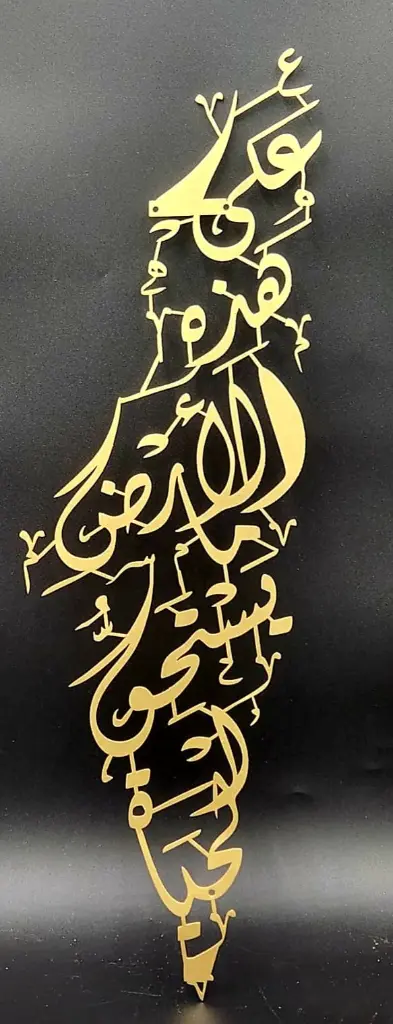 على
هذه
الأرض
ما
يستحق
الحياة